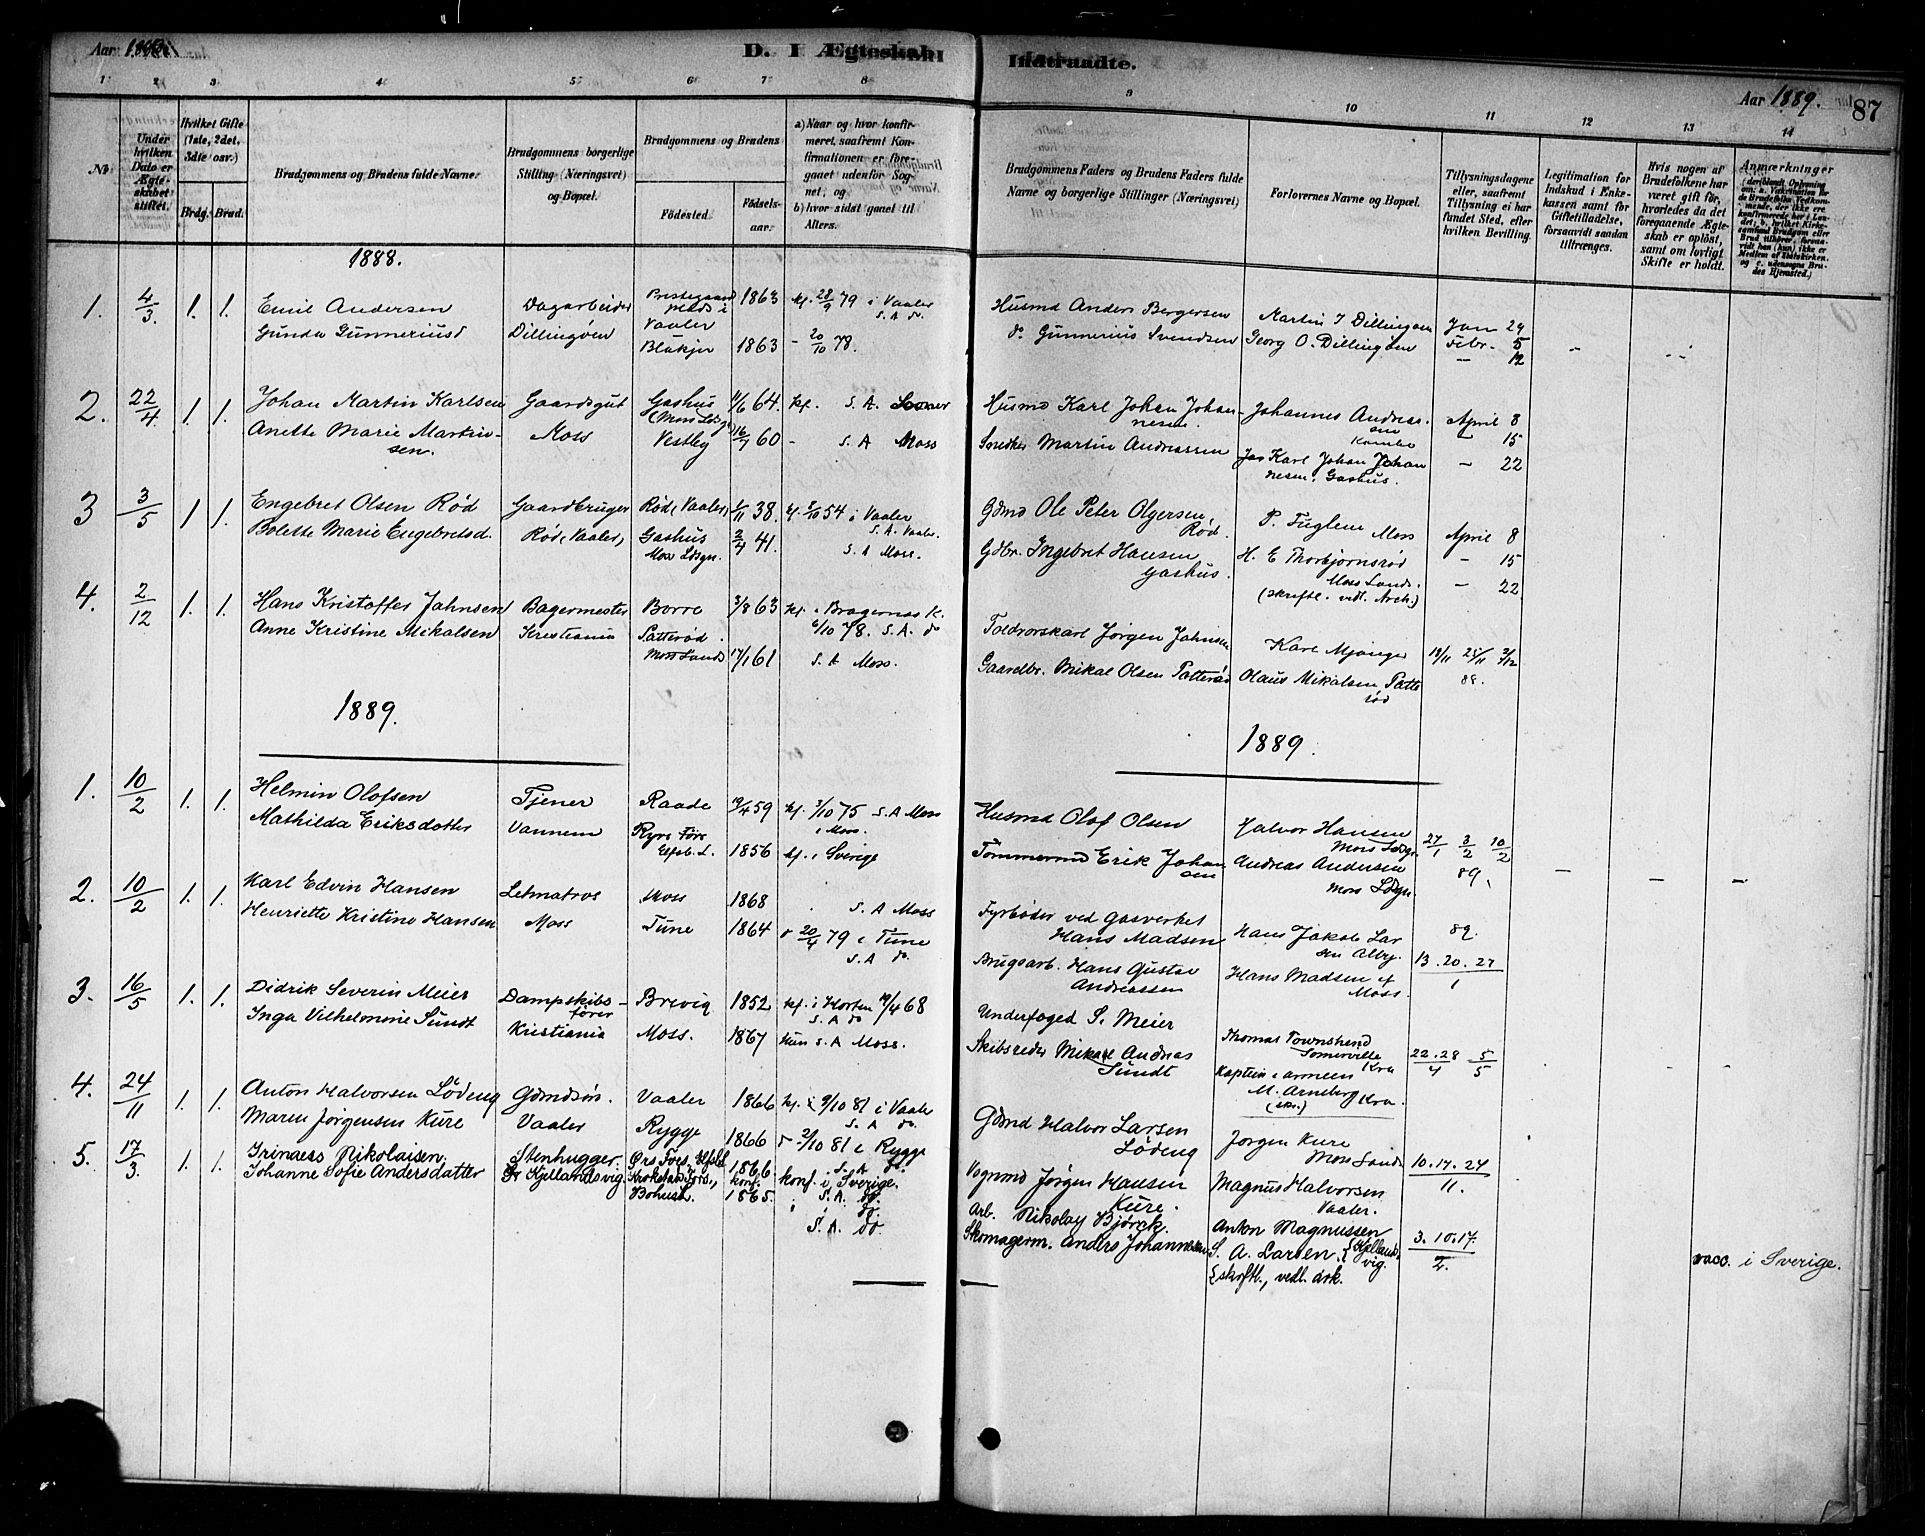 Aar
D. I Ægteskab
Indtraadte.
Aar 1889.
87
1
2
3
4
5
6
7
8
9
10
11
12
13
14
No.
Under hvilken Dato er Ægteskabet stiftet.
Hvilket Gifte (1ste, 2det, 3die osv.)
Brdg.
Brud.
Brudgommens og Brudens fulde Navne.
Brudgommens borgerlige Stilling (Næringsvei) og Bopæl.
Brudgommens og Brudens
Fødested.
Fødselsaar.
a) Naar og hvor konfirmeret, saafremt Konfirmationen er foregaaet udenfor Sognet; og
b) hvor sidst gaaet til Alters.
Brudgommens Faders og Brudens Faders fulde Navne og borgerlige Stillinger (Næringsvei)
Forlovernes Navne og Bopæl.
Tillysningsdagene eller, saafremt Tillysning ei har fundet Sted, efter hvilken Bevilling.
Legitimation for Indskud i Enkekassen samt for Giftetilladelse, forsaavidt saadan tiltrænges.
Hvis nogen af Brudefolkene har været gift før, hvorledes da det foregaaende Ægteskab er opløst, samt om lovligt Skifte er holdt.
Anmærkninger
1888.
1. 4/3 1. 1. Emil Andersen Dagarbeider Prestegaard Plads i Vaaler 1863 kf. 28/9 79 i Vaaler S. A do.
Gunda Gunneriusd Dillingøen Blakjer 1863 - 20/10 78.
Husmd Anders Bergersen Martin J Dillingøen Jan 29
do Gunnerius Svendsen Georg O. Dillingøen Febr. 5
- 12
2. 22/4. 1 1. Johan Martin Karlsen Gaardsgut Gashus (Moss Ldsgn) 11/6 64. kf. S. A. Sooner
Anette Marie Martinsen. Moss Vestby 16/7 60 - S. A Moss
Husmd Karl Johan Johannesen. Johannes Andreassen Kambo April 8
Snedker Martin Andreassen - 15
Jas Karl Johan Johannesen, Gashus. - 22
3 3/5 1 1. Engebret Olsen Rød Gaardbruger Rød, Vaaler, 38. 54 i Vaaler S. A. Vaaler.
Bolette Marie Engebretsd. Rød, Vaaler, Gashus Moss Ldsgn. 2/4 41. S. A Moss.
Gdmd Ole Peter Olgersen Rød. P. Fuglem Moss April 8
Gdbr. Ingebret Hansen Gashus. H. E Thorbjørnsrød Moss Lands. - 15
(skriftl. vedl. Arch.) - 22
4. 2/12 1. 1. Hans Kristoffer Jahnsen Bagermester Borre 3/8 63 kf. i Bragernæs K. 6/10 78. S. A. do
Anne Kristine Mikalsen Kristiania Patterød. Moss Lands 17/1 61 S. A Moss.
Toldrorskarl Jørgen Jahnsen Karl Mjanger 18/11 25/11 2/12
Gaardbr. Mikal Olsen Patterød Olaus Mikalsen Patterød 88.
1889.
1889.
1. 10/2 1. 1. Helmin Olofsen Tjener Raade 19/4 59 kf. 3/10 75 S. A Moss i Moss.
Mathilda Eriksdotter Vannem Ryrs Førs Elfsb. L. 1856 kf. i Sverige
Husmd Olof Olsen Halvor Hansen Moss Ldsgn. 27/1 3/2 10/2
Tømmermd Erik Johansen Andreas Andersen Moss Ldsgn. 89.
2. 10/2 1. 1. Karl Edvin Hansen Letmatros Moss 1868 S. A Moss
Henriette Kristine Hansen Moss Tune 1864 20/4 79 i Tune S. A do.
Fyrbøder ved Gasverket Hans Madsen Hans Jakob Larsen Alby. 89.
Brugsarb. Hans Gustav Andreassen Hans Madsen af Moss. 13. 20. 27/1
3. 16/5 1. 1. Didrik Severin Meier Dampskibsfører Brevig 1852 kf. i Horten 19/4 68 S. A do
Inga Vilhelmine Sundt Kristiania Moss. 1867 Hun S. A Moss.
Underfoged S. Meier Thomas Townshend Somerville Kra 22. 28/4 5/5
Skibsreder Mikael Andreas Sundt Kaptein i armeen M. Arneberg Kra. (skr.)
4. 24/11 1. 1. Anton Halvorsen Lødeng Gdmdsøn. Vaaler 1866 kf. 9/10 81 i Vaaler S. A do.
Maren Jørgensen Kure Vaaler Rygge 1866 2/10 81 i Rygge S. A do.
Gdmd Halvor Larsen Lødeng Jørgen Kure Moss Lands 10. 17. 24/11.
Vognmd Jørgen Hansen Kure. Magnus Halvorsen Vaaler.
5. 17/3. 1. 1. Irinaeus Nikolaisen. Stenhugger. Ørs Fors., Elfsbl. 1866. konf. i Sverige. S. A. do.
Johanne Sofie Andersdatter Kjellandsvig. Krokstad Førs., Bohusl. konf. 1865. do. S. A. do.
Arb. Nikolay Bjørck. Anton Magnussen 3. 10. 17./2.
Skomagerm. Anders Johannessen S. A. Larsen. Kjellandsvig.
skriftl., vedl. ark.
vacc. i Sverige.